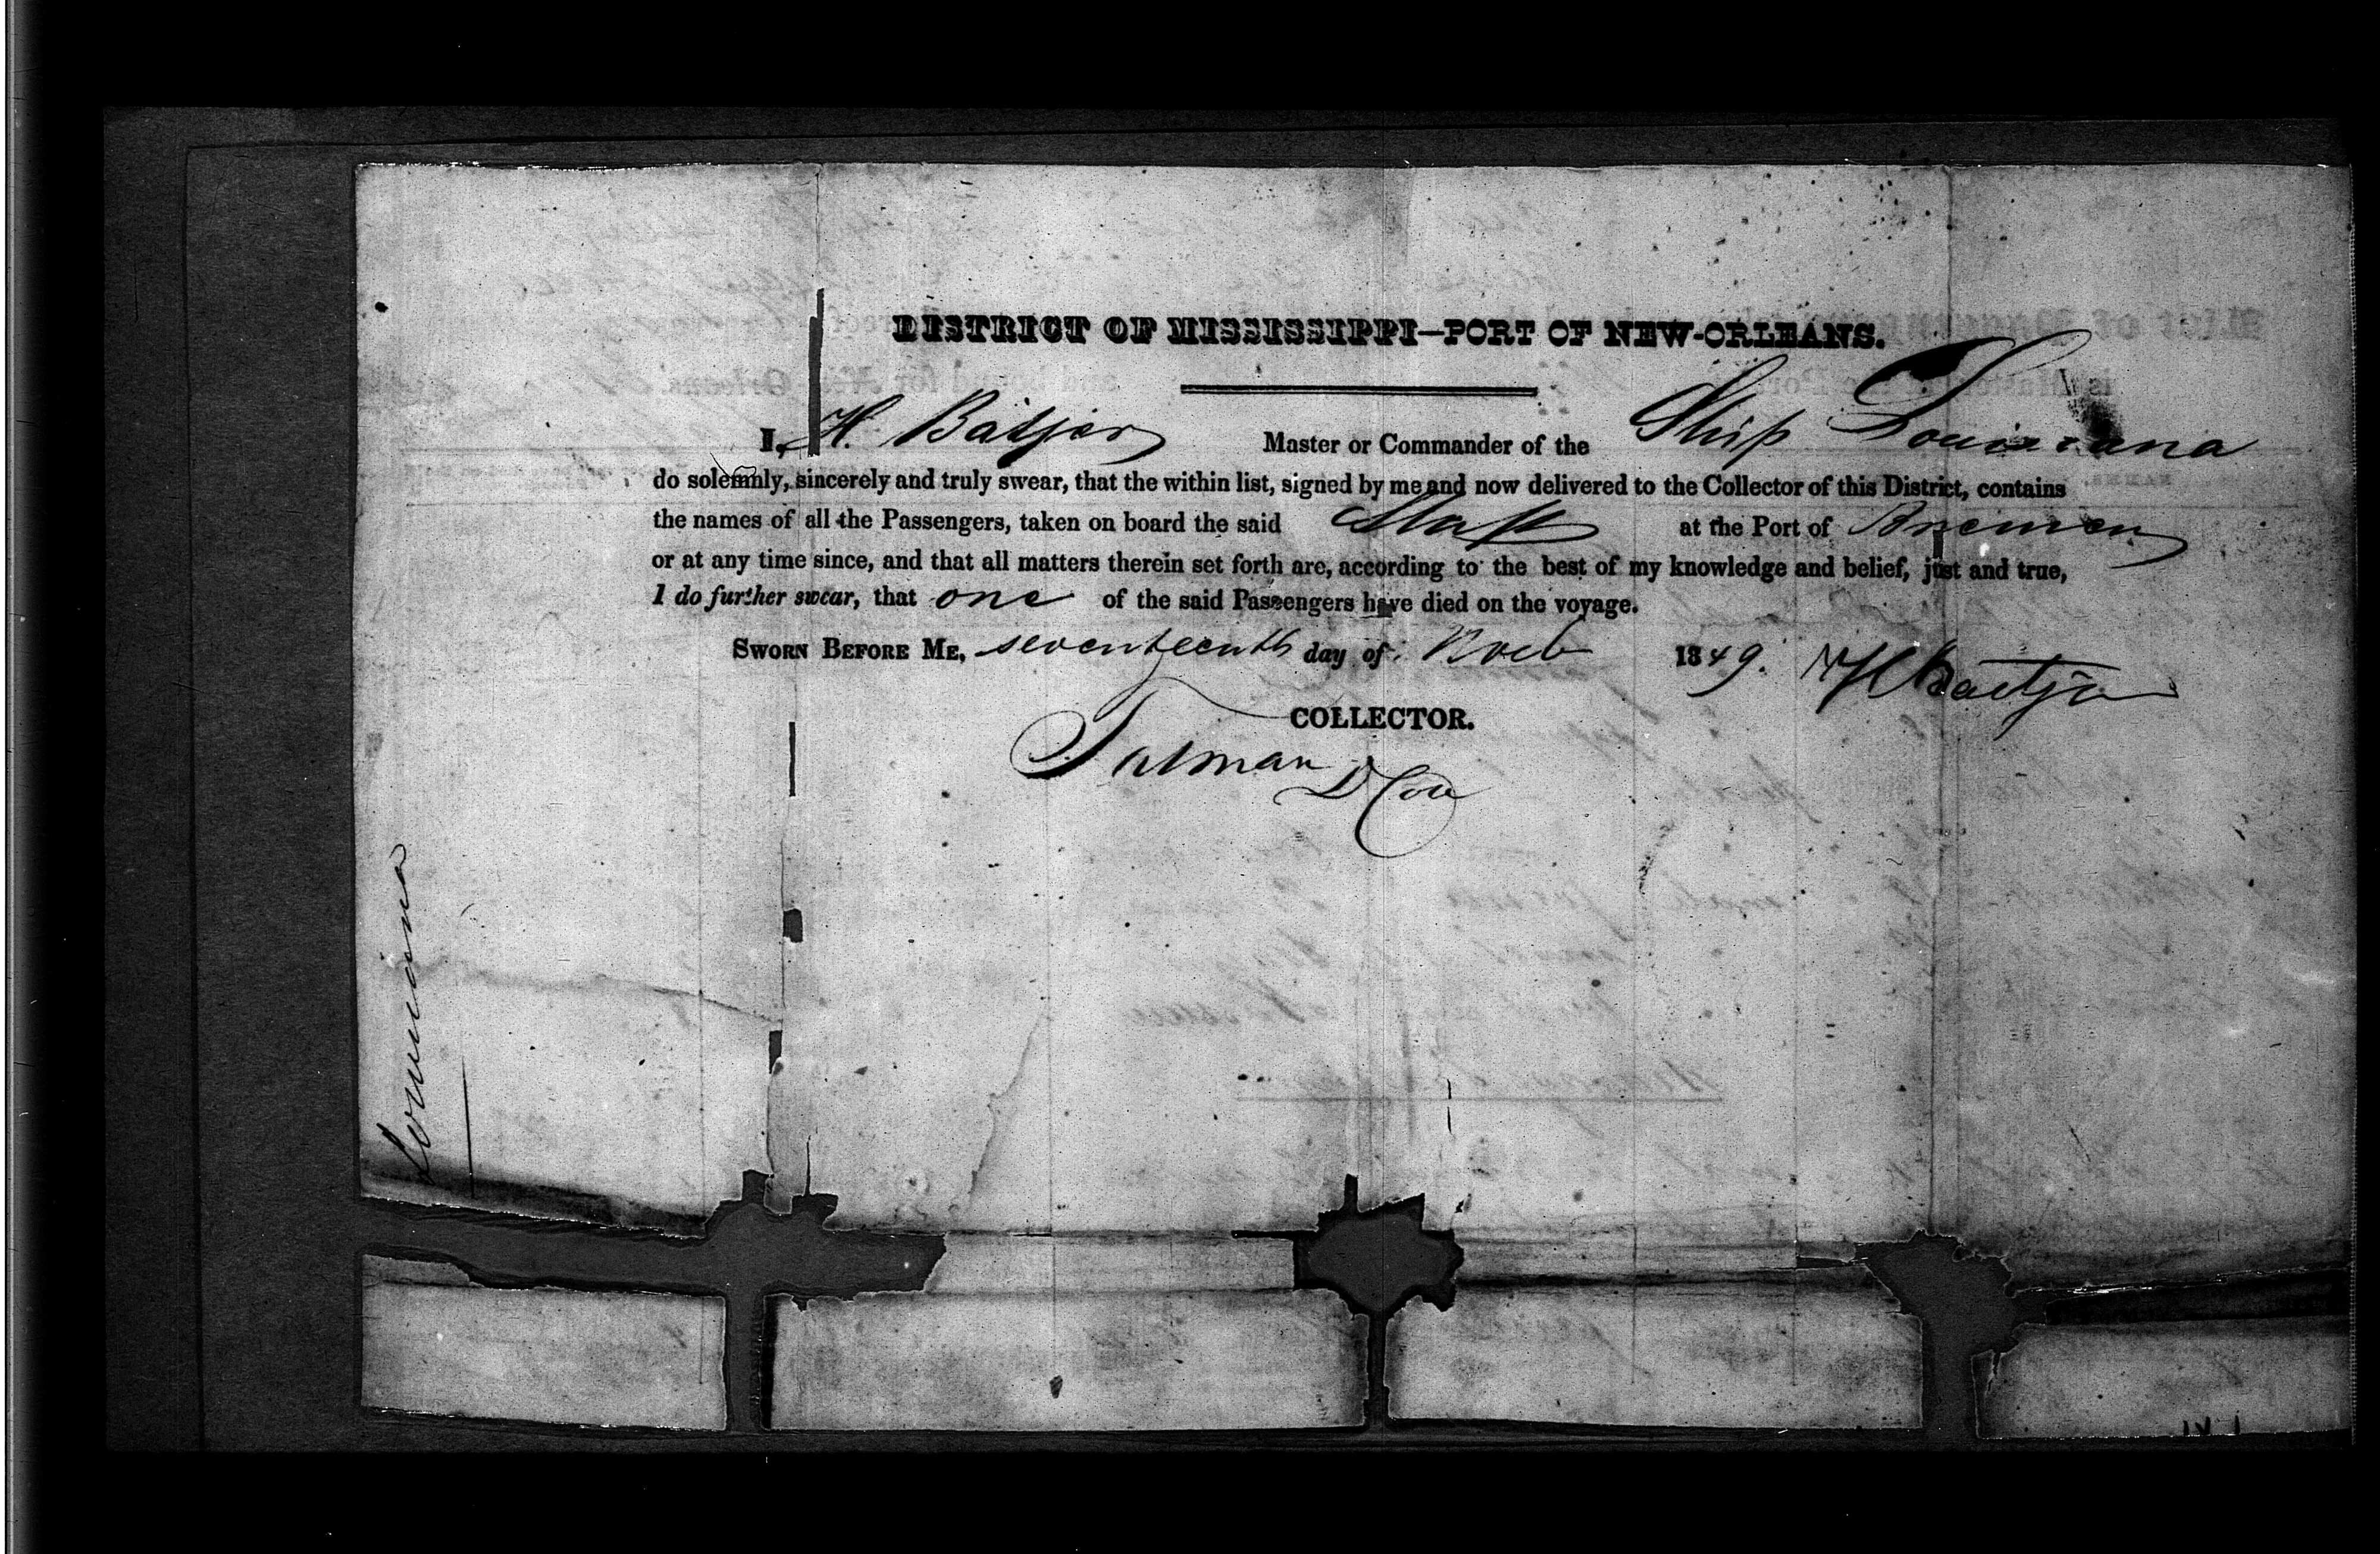 DISTRICT OF MISSISSIPPI—PORT OF NEW-ORLEANS.
I, H. Batjer Master or Commander of the Ship Louisiana
do solemnly, sincerely and truly swear, that the within list, signed by me and now delivered to the Collector of this District, contains
the names of all the Passengers, taken on board the said Ship at the Port of Bremen
or at any time since, and that all matters therein set forth are, according to the best of my knowledge and belief, just and true,
I do further swear, that one of the said Passengers have died on the voyage.
SWORN BEFORE ME, seventeenth day of Novb 1849. H Baetjer
COLLECTOR.
Talman
D Col
Louisiana